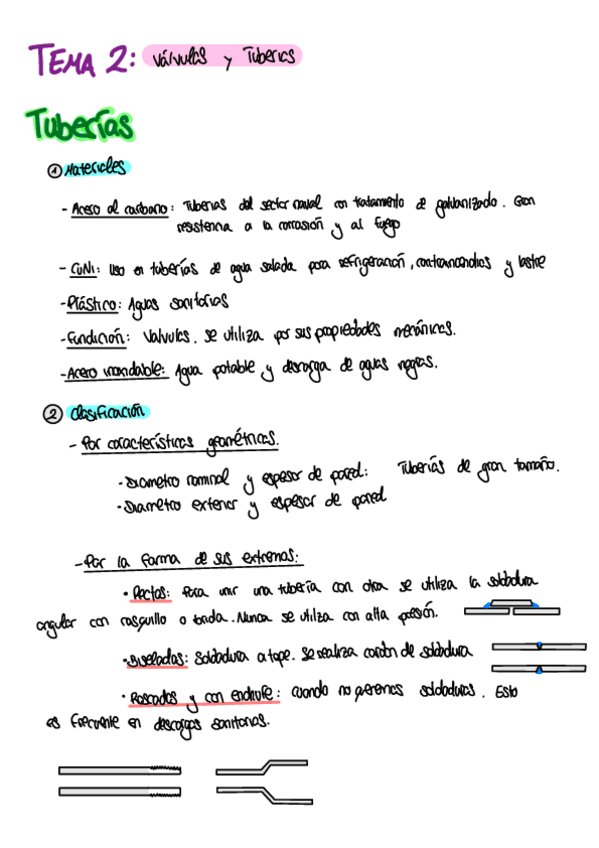 TEMA 2: Válvulas y Tuberías
Tuberías
① Materiales
- Acero al carbono: Tuberías del sector naval con tratamiento de galvanizado. Gran
resistencia a la corrosión y al fuego
- CuNi: uso en tuberías de agua salada para refrigeración, contraincendios y lastre
- Plástico: Aguas sanitarias
- Fundición: Valvulas. se utiliza por sus propiedades mecánicas.
- Acero inoxidable: Agua potable y descarga de aguas negras.
② Clasificación
- Por características geométricas.
- Diametro nominal y espesor de pared: Tuberías de gran tamaño.
- Diametro exterior y espesor de pared
- Por la forma de sus extremos:
• Rectas: Para unir una tubería con otra se utiliza la soldadura
angular con casquillo o banda. Nunca se utiliza con alta presión.
• Biseladas: Soldadura a tope. Se realiza cordón de soldadura
• Roscadas y con enchufe: cuando no queremos soldaduras. Esto
es frecuente en descargas sanitarias.